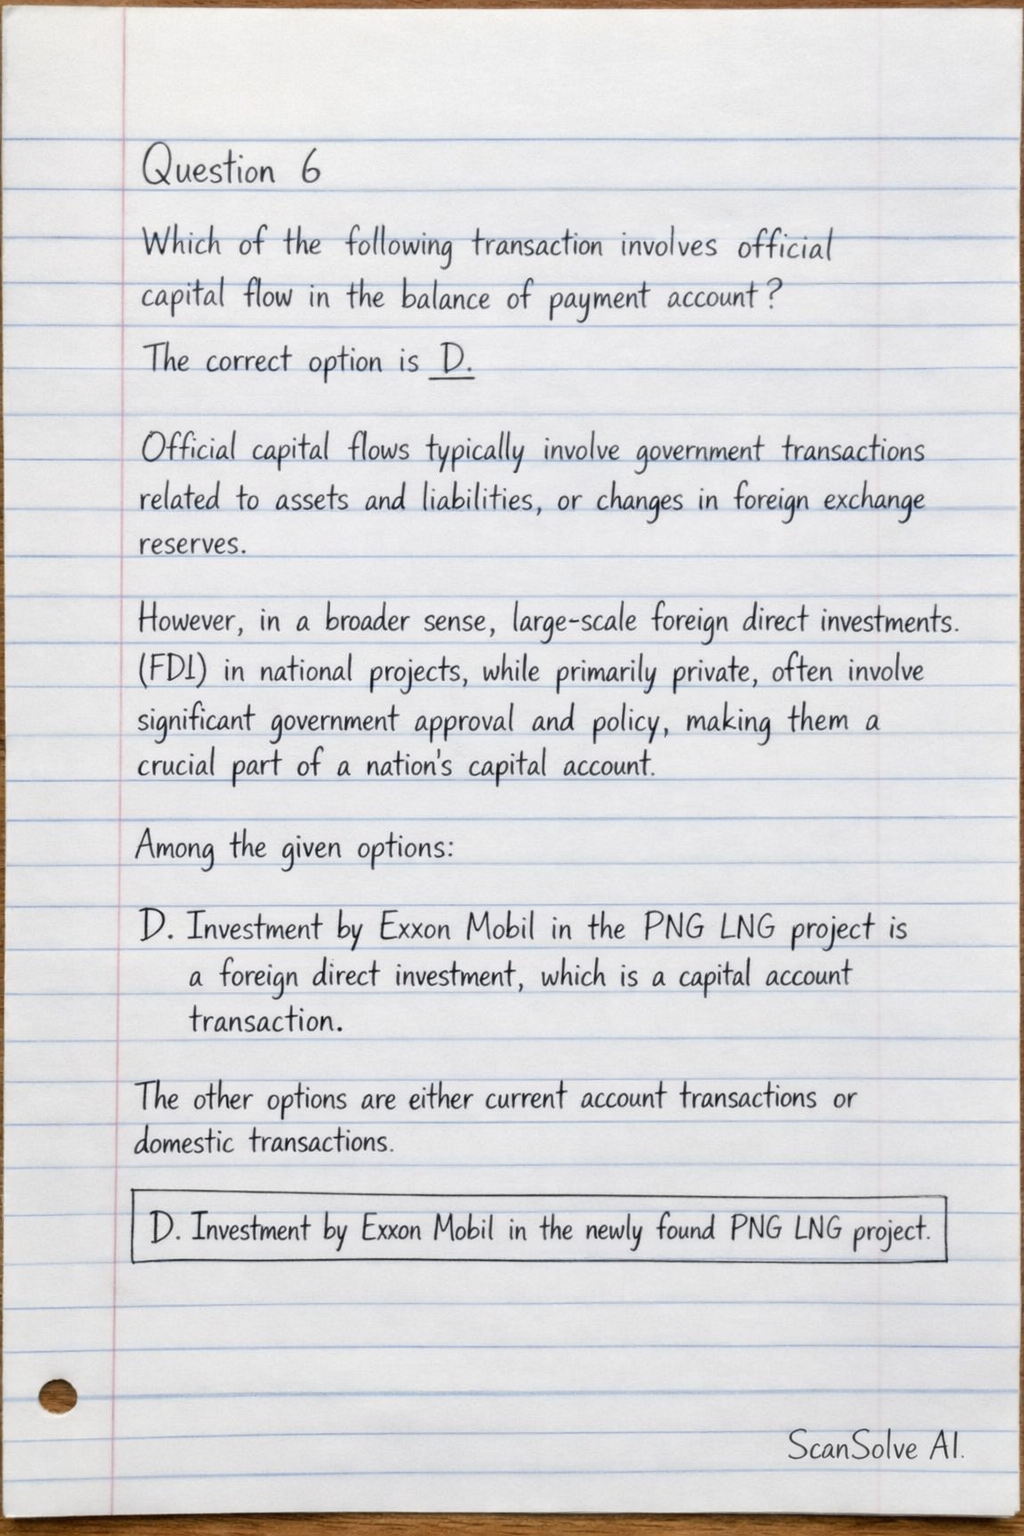 Question 6
Which of the following transaction involves official
capital flow in the balance of payment account?
The correct option is D.
Official capital flows typically involve government transactions
related to assets and liabilities, or changes in foreign exchange
reserves.
However, in a broader sense, large-scale foreign direct investments.
(FDI) in national projects, while primarily private, often involve
significant government approval and policy, making them a
crucial part of a nation's capital account.
Among the given options:
D. Investment by Exxon Mobil in the PNG LNG project is
a foreign direct investment, which is a capital account
transaction.
The other options are either current account transactions or
domestic transactions.
D. Investment by Exxon Mobil in the newly found PNG LNG project.
ScanSolve AI.